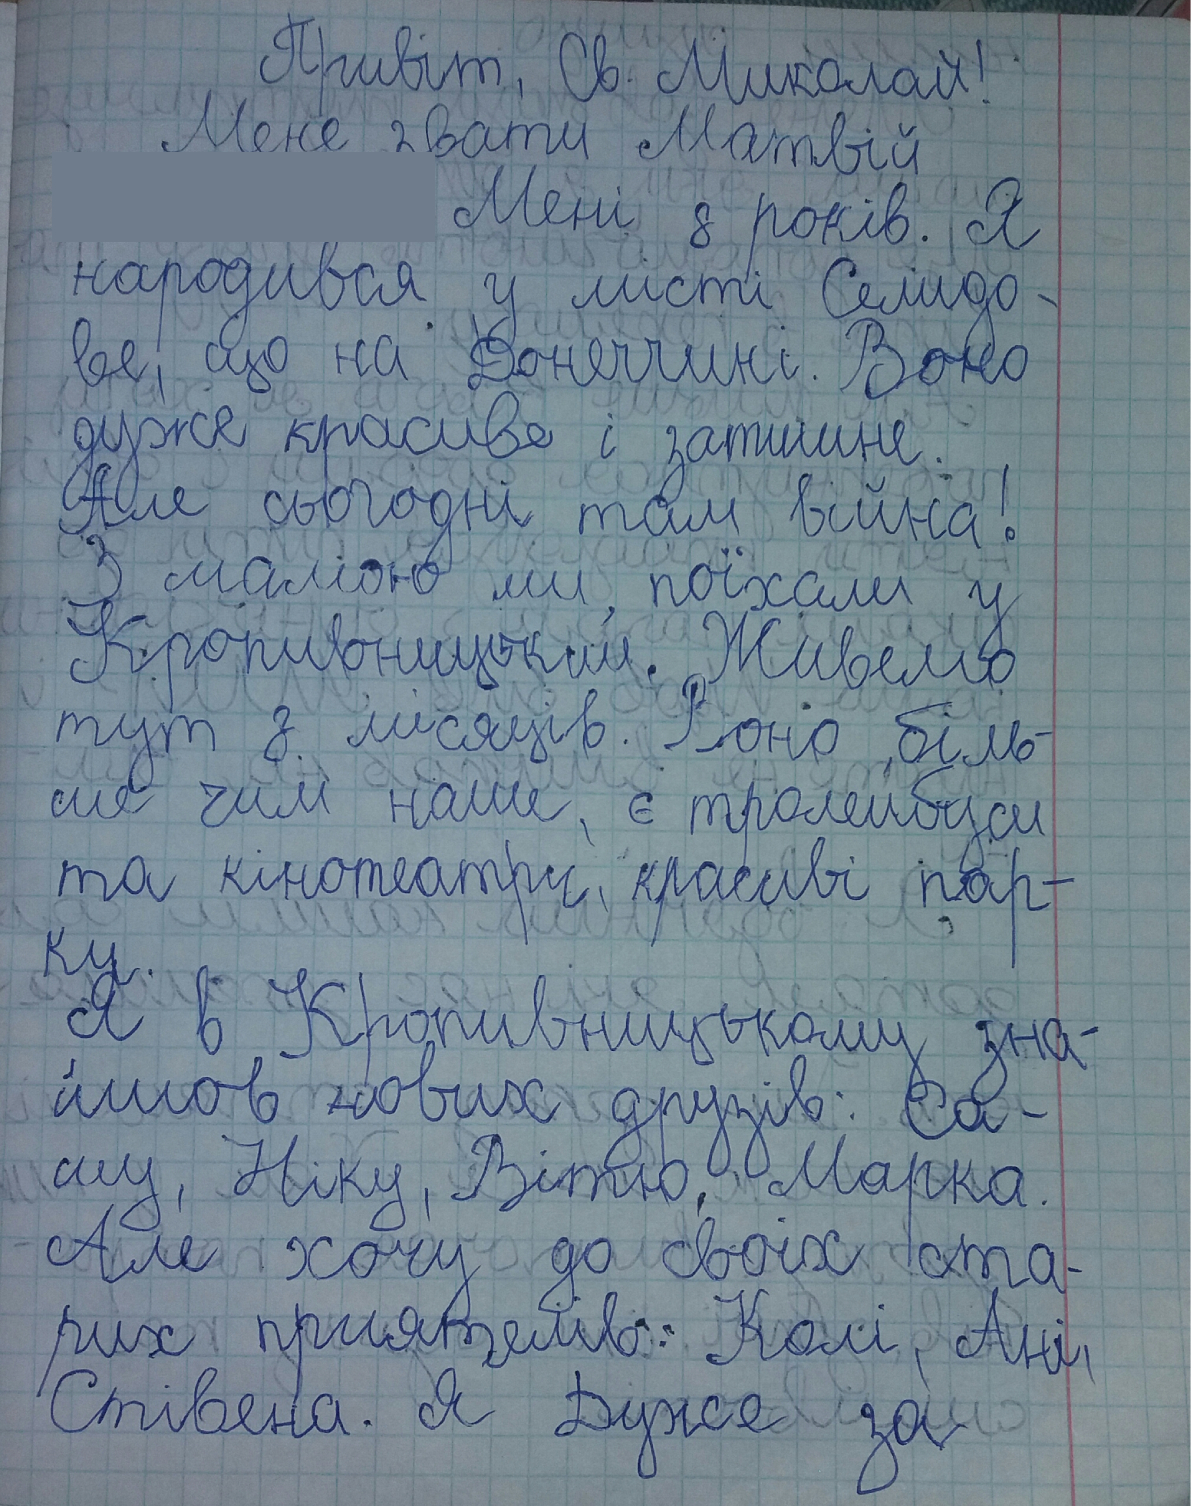 Привіт, Св. Миколай!
Мене звати Матвій
Мені 8 років. Я
народився у місті Селидо-
ве, що на Донеччині. Воно
дуже красиве і затишне.
Але сьогодні там війна!
З мамою ми поїхали у
Кропивницький. Живемо
тут 8 місяців. Воно біль-
ше чим наше, є тролейбуси
та кінотеатри, красиві пар-
ки.
Я в Кропивницькому зна-
йшов нових друзів: Са-
шу, Ніку, Вітю, Марка.
Але хочу до своїх ста-
рих приятелів: Колі, Ані,
Стівена. Я дуже за